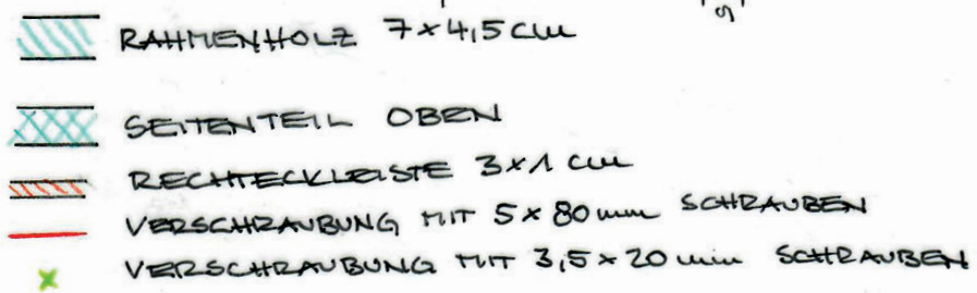 RAHMENHOLZ 7x4,5 cm
SEITENTEIL OBEN
RECHTECKLEISTE 3x1 cm
VERSCHRAUBUNG MIT 5 x 80 mm SCHRAUBEN
VERSCHRAUBUNG MIT 3,5 x 20 mm SCHRAUBEN